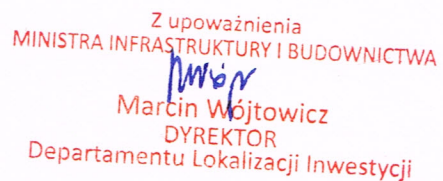 Z upoważnienia
MINISTRA INFRASTRUKTURY I BUDOWNICTWA
Marcin Wójtowicz
DYREKTOR
Departamentu Lokalizacji Inwestycji